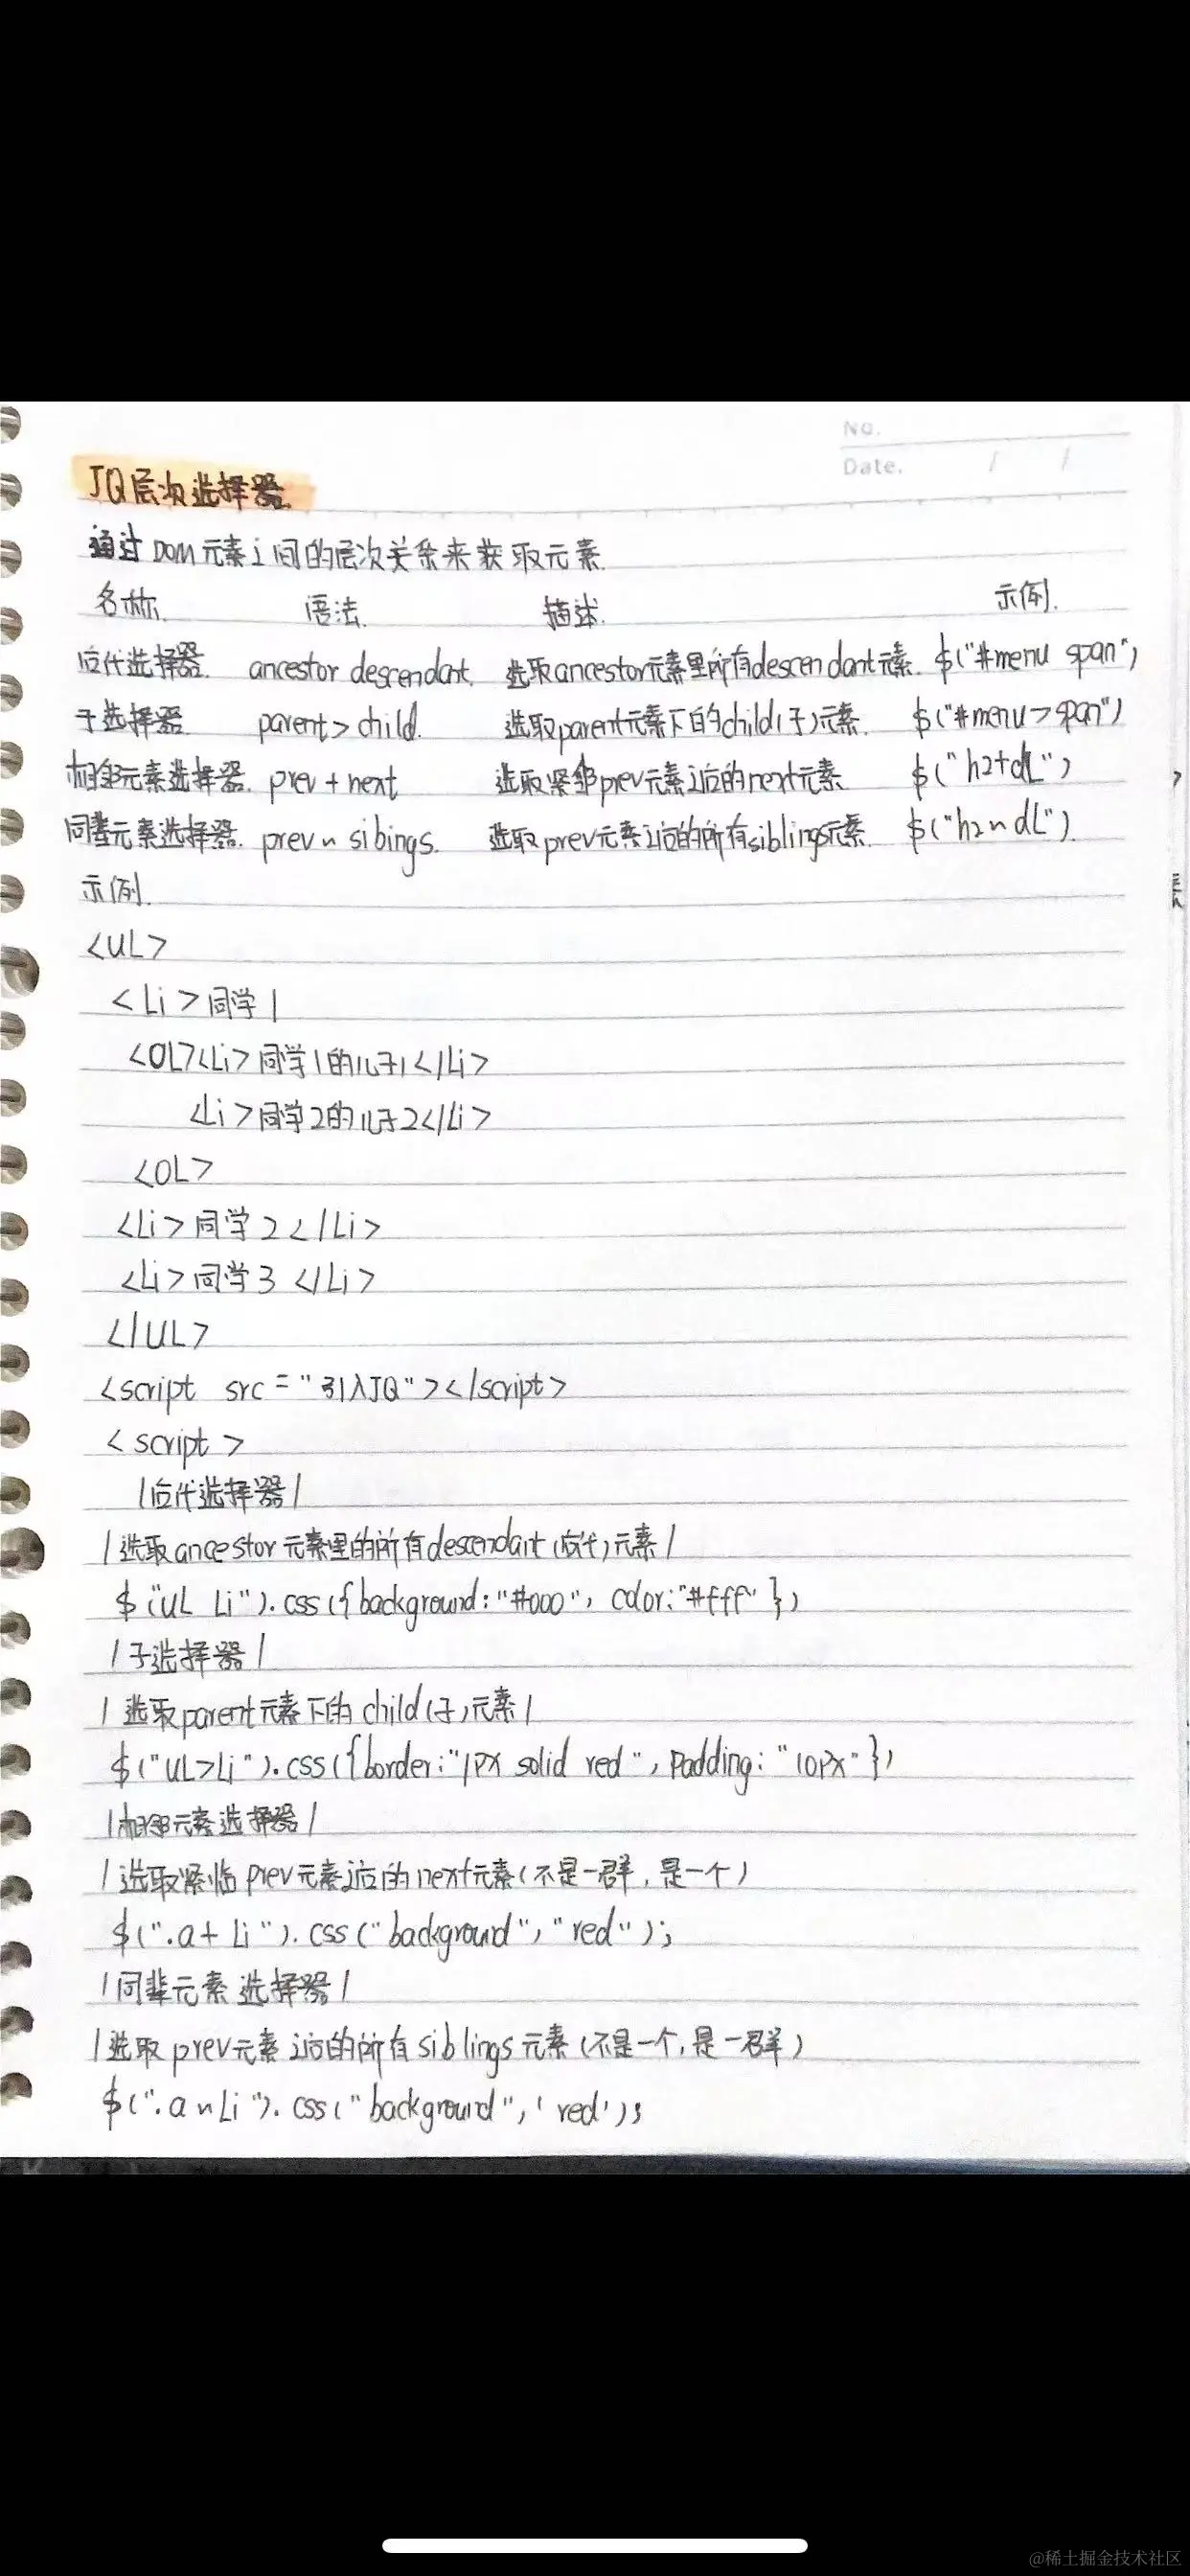 No.
Date. / /
JQ层次选择器.
通过DOM元素之间的层次关系来获取元素.
名称. 语法. 描述. 示例.
后代选择器. ancestor descendant. 选取ancestor元素里所有descendant元素. $("#menu span")
子选择器 parent>child. 选取parent元素下的child(子)元素. $("#menu>span")
相邻元素选择器. prev + next 选取紧邻prev元素之后的next元素 $("h2+dL")
同辈元素选择器. prev ~ sibings. 选取prev元素之后的所有siblings元素. $("h2~dL").
示例.
<UL>
<Li>同学1
<OL><Li>同学1的儿子1</Li>
<Li>同学2的儿子2</Li>
<OL>
<Li>同学2</Li>
<Li>同学3 </Li>
</UL>
<script src="引入JQ"></script>
<script>
/后代选择器/
/选取ancestor元素里的所有descendant(后代)元素/
$("UL Li").css({background:"#000", color:"#fff"})
/子选择器/
/选取parent元素下的child(子)元素/
$("UL>Li").css({border:"1PX solid red", padding:"10PX"})
/相邻元素选择器/
/选取紧临prev元素之后的next元素(不是一群,是一个)
$(".a+ Li").css("background","red");
/同辈元素选择器/
/选取prev元素之后的所有siblings元素(不是一个,是一群)
$(".a~Li").css("background",'red');
@稀土掘金技术社区